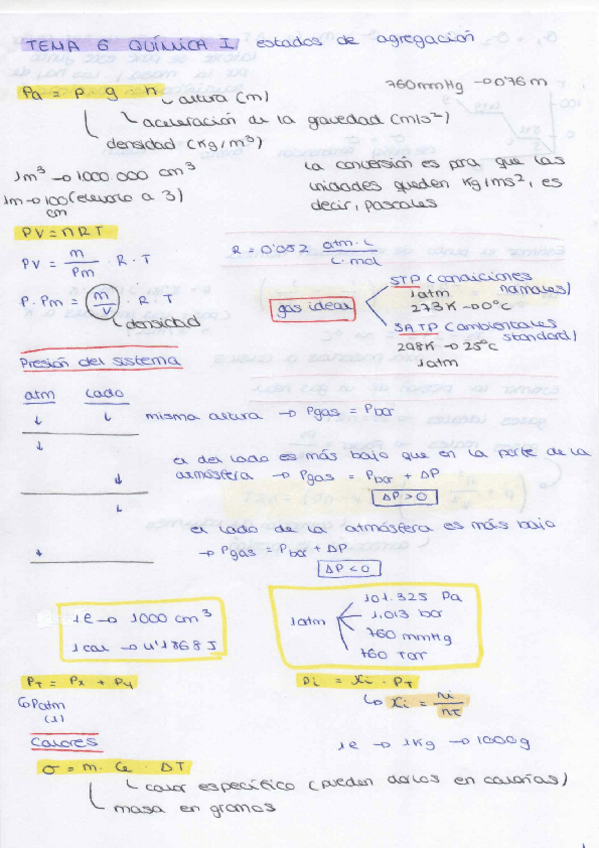 TEMA 6 QUÍMICA I estados de agregación
Pa = ρ · g · h
760mmHg → 0'76 m
altura (m)
aceleración de la gravedad (m/s²)
densidad (kg/m³)
1m³ → 1000 000 cm³
1m → 100 (elevarlo a 3)
cm
la conversión es pra que las
unidades queden kg/ms², es
decir, pascales
PV = nRT
PV = m/Pm · R · T
R = 0'082 atm·L/L·mol
P · Pm = m/V · R · T
densidad
gas ideal
STP (condiciones
normales)
1atm
273K → 0ºC
SATP (ambientales
standard)
298K → 25ºC
1atm
Presión del sistema
atm lado
misma altura → Pgas = Pbar
el del lado es más bajo que en la parte de la
atmósfera → Pgas = Pbar + ΔP
ΔP > 0
el lado de la atmósfera es más bajo
→ Pgas = Pbar + ΔP
ΔP < 0
1l → 1000 cm³
1cal → 4'1868 J
1atm
101.325 Pa
1,013 bar
760 mmHg
760 Torr
PT = Px + Py
Patm
(1)
Pi = Xi · PT
Xi = ni/nT
Calores
1l → 1kg → 1000g
σ = m · Ce · ΔT
calor específico (pueden darlos en calorías)
masa en gramos